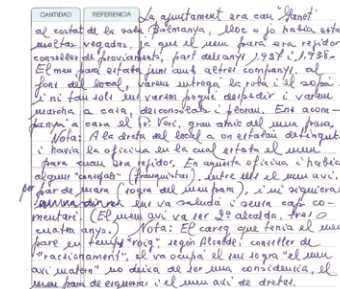 CANTIDAD REFERENCIA
La ajuntament era can "Planet"
al costat de la sala Palmanya, lloc o jo habia esta
moltas vegadas, ja que el meu pare era regidor
conseller de proviaments, part dels anys 1.937 i 1.938.
El meu pare estaba junt amb altres companys, al
fons del local, varem entregá la rota i el sopá
i ni tan sols ens varem pogué despedir i varem
marchá a casa, desconsolats i ploran. Ens acom-
panyá a casa el Pº Vori, gran amic del meu pare.
Nota: A la dreta del local a on estaban distinguts
i havia la oficina en la cual estaba el meu
pare cuan era regidor. En aquesta oficina i habia
alguns "concejals" (franquistas), entre ells el meu avi,
per part de mare (sogra del meu pare), i ni siquiera
una dirnos ens va saludá i sense cap co-
mentari. (El meu avi va ser 2º alcalde, tres o
cuatre anys.) Nota: El carreg que tenia el meu
pare en temps "roig", segon Alcalde, conseller de
"racsionament", el va ocupá el seu sogra "el meu
avi matern" no deixa de ser una considencia, el
meu pare de esquerras i el meu avi de dretas.